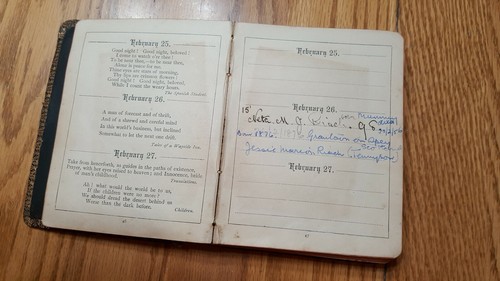 February 25.
Good night! Good night, beloved!
I come to watch o'er thee!
To be near thee,—to be near thee,
Alone is peace for me.
Thine eyes are stars of morning,
Thy lips are crimson flowers!
Good night! Good night, beloved,
While I count the weary hours.
The Spanish Student.
February 26.
A man of forecast and of thrift,
And of a shrewd and careful mind
In this world's business, but inclined
Somewhat to let the next one drift.
Tales of a Wayside Inn.
February 27.
Take from henceforth, as guides in the paths of existence,
Prayer, with her eyes raised to heaven; and Innocence, bride
of man's childhood.
Translations.
Ah! what would the world be to us,
If the children were no more?
We should dread the desert behind us
Worse than the dark before.
Children.
February 25.
February 26.
15
Neta. M.
98
Born 1876.
Jessie Marion
February 27.